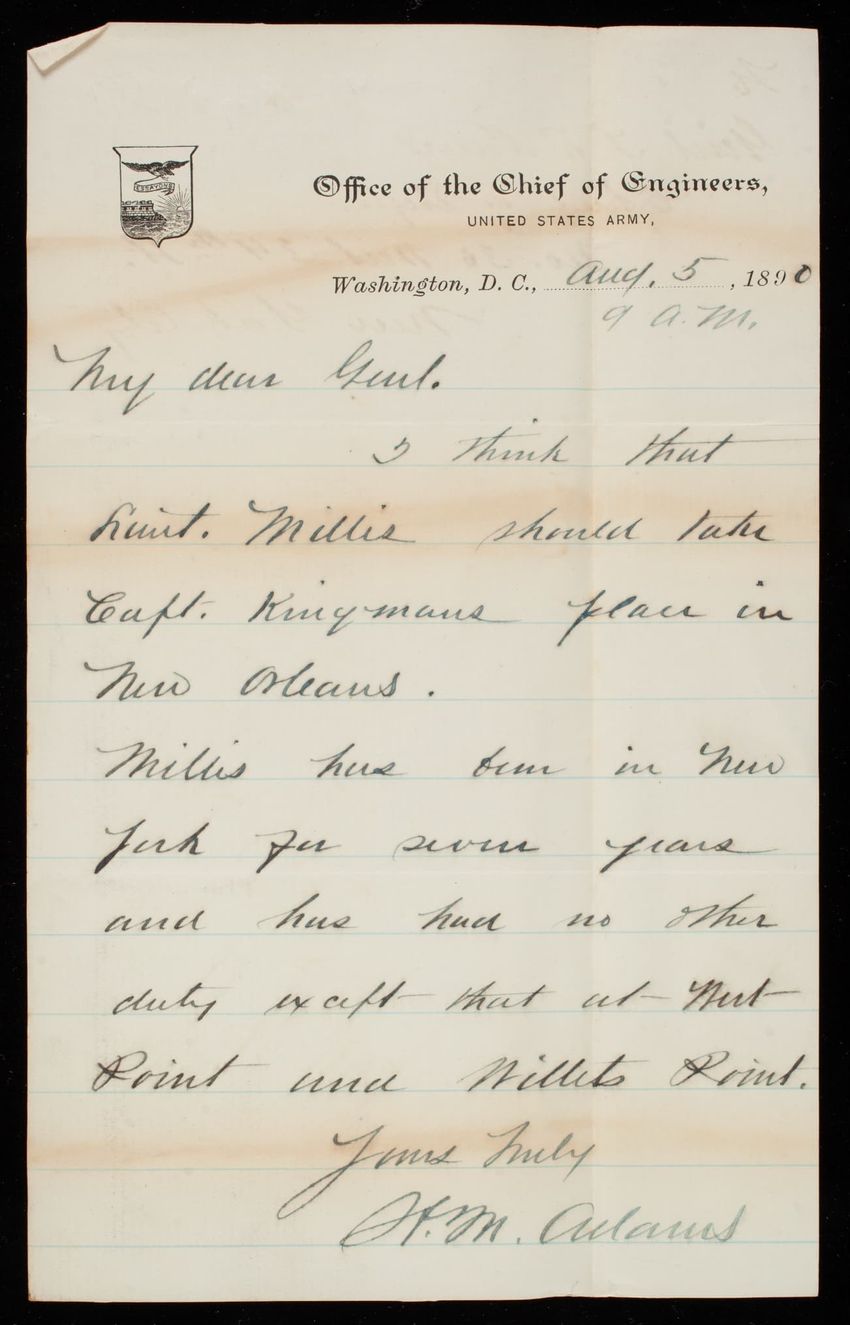 ESSAYONS
Office of the Chief of Engineers,
UNITED STATES ARMY,
Washington, D. C., Aug. 5, 1890
9 A.M.
My dear Genl.
I think that
Lieut. Millis should take
Capt. Kingmans place in
New Orleans.
Millis has been in New
York for seven years
and has had no other
duty except that at West
Point and Willets Point.
Yours truly
H. M. Adams